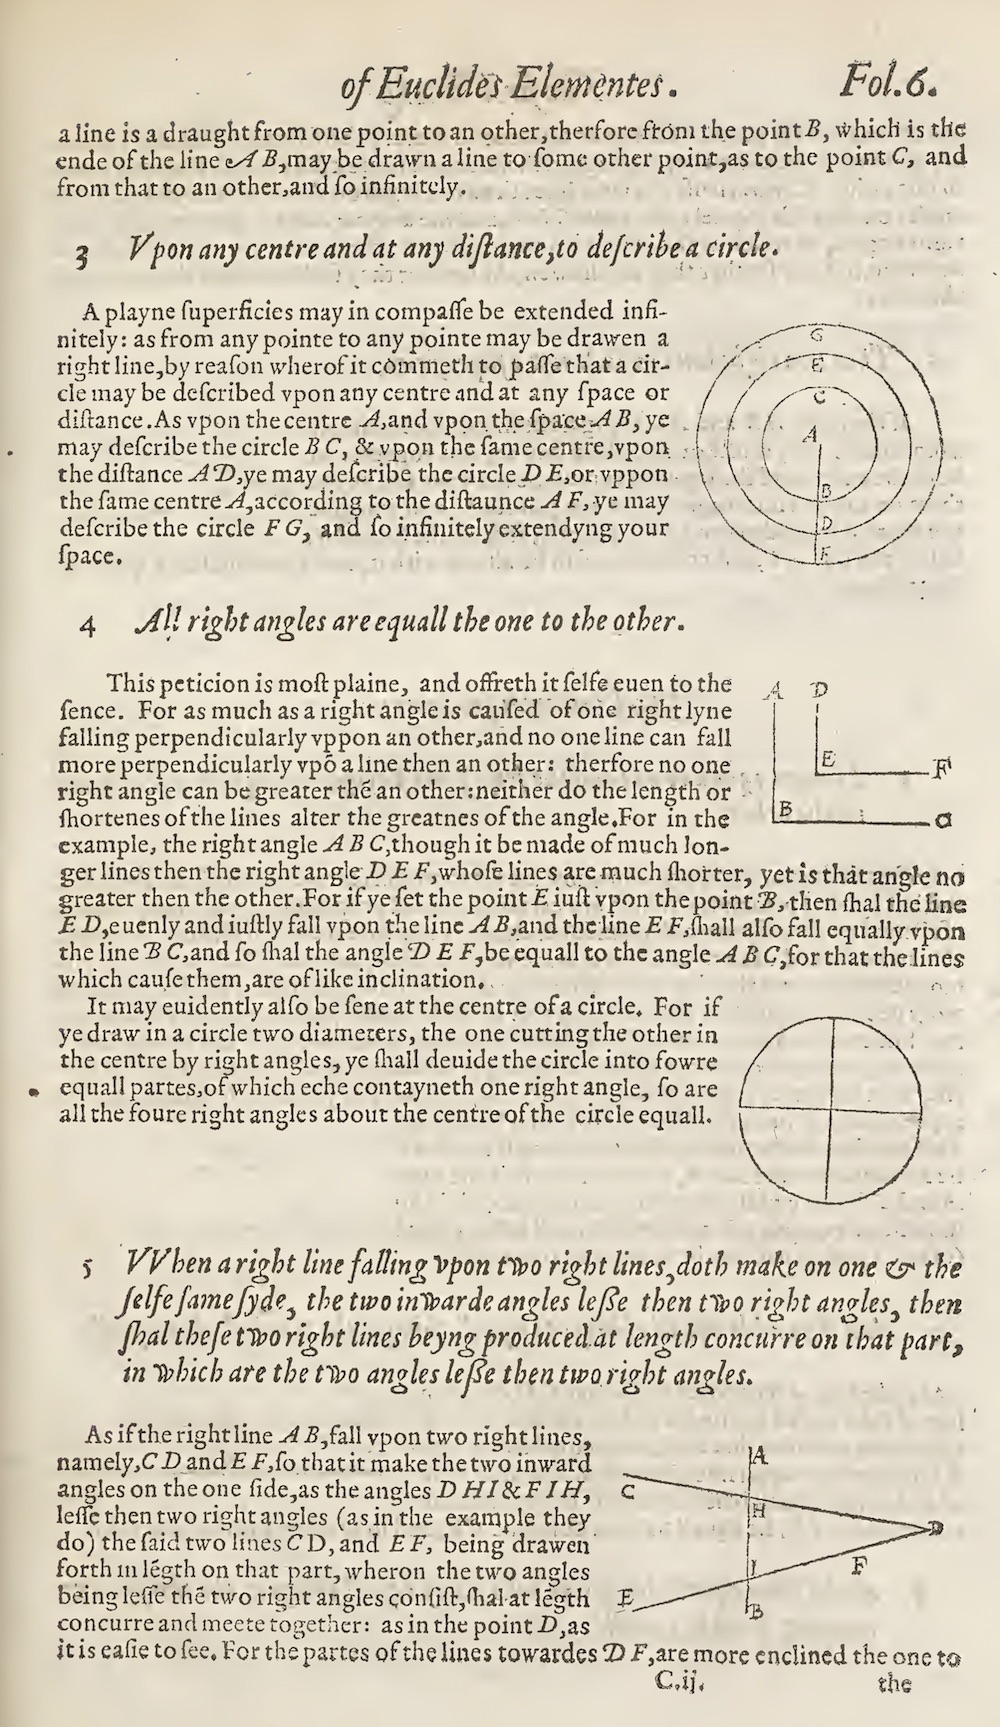 of Euclides Elementes. Fol.6.
a line is a draught from one point to an other, therfore from the point B, which is the
ende of the line A B, may be drawn a line to ſome other point, as to the point C, and
from that to an other, and ſo infinitely.
3 Vpon any centre and at any diſtance, to deſcribe a circle.
A playne ſuperficies may in compaſſe be extended infi-
nitely: as from any pointe to any pointe may be drawen a
right line, by reaſon wherof it commeth to paſſe that a cir-
cle may be deſcribed vpon any centre and at any ſpace or
diſtance. As vpon the centre A, and vpon the ſpace A B, ye
may deſcribe the circle B C, & vpon the ſame centre, vpon
the diſtance A D, ye may deſcribe the circle D E, or vppon
the ſame centre A, according to the diſtaunce A F, ye may
deſcribe the circle F G, and ſo infinitely extendyng your
ſpace.
G
E
C
A
B
D
F
4 All right angles are equall the one to the other.
This peticion is moſt plaine, and offreth it ſelfe euen to the
ſence. For as much as a right angle is cauſed of one right lyne
falling perpendicularly vppon an other, and no one line can fall
more perpendicularly vpō a line then an other: therfore no one
right angle can be greater thē an other: neither do the length or
ſhortenes of the lines alter the greatnes of the angle. For in the
example, the right angle A B C, though it be made of much lon-
ger lines then the right angle D E F, whoſe lines are much ſhorter, yet is that angle no
greater then the other. For if ye ſet the point E iuſt vpon the point B, then ſhal the line
E D, euenly and iuſtly fall vpon the line A B, and the line E F, ſhall alſo fall equally vpon
the line B C, and ſo ſhal the angle D E F, be equall to the angle A B C, for that the lines
which cauſe them, are of like inclination.
A D
E F
B C
It may euidently alſo be ſene at the centre of a circle. For if
ye draw in a circle two diameters, the one cutting the other in
the centre by right angles, ye ſhall deuide the circle into fowre
equall partes, of which eche contayneth one right angle, ſo are
all the foure right angles about the centre of the circle equall.
5 VVhen a right line falling vpon two right lines, doth make on one & the
ſelfe ſame ſyde, the two inwarde angles leſſe then two right angles, then
ſhal theſe two right lines beyng produced at length concurre on that part,
in which are the two angles leſſe then two right angles.
As if the right line A B, fall vpon two right lines,
namely, C D and E F, ſo that it make the two inward
angles on the one ſide, as the angles D H I & F I H,
leſſe then two right angles (as in the example they
do) the ſaid two lines C D, and E F, being drawen
forth in lēgth on that part, wheron the two angles
being leſſe thē two right angles conſiſt, ſhal at lēgth
concurre and meete together: as in the point D, as
it is eaſie to ſee. For the partes of the lines towardes D F, are more enclined the one to
A
C
H
D
I
F
E
B
C.ij. the